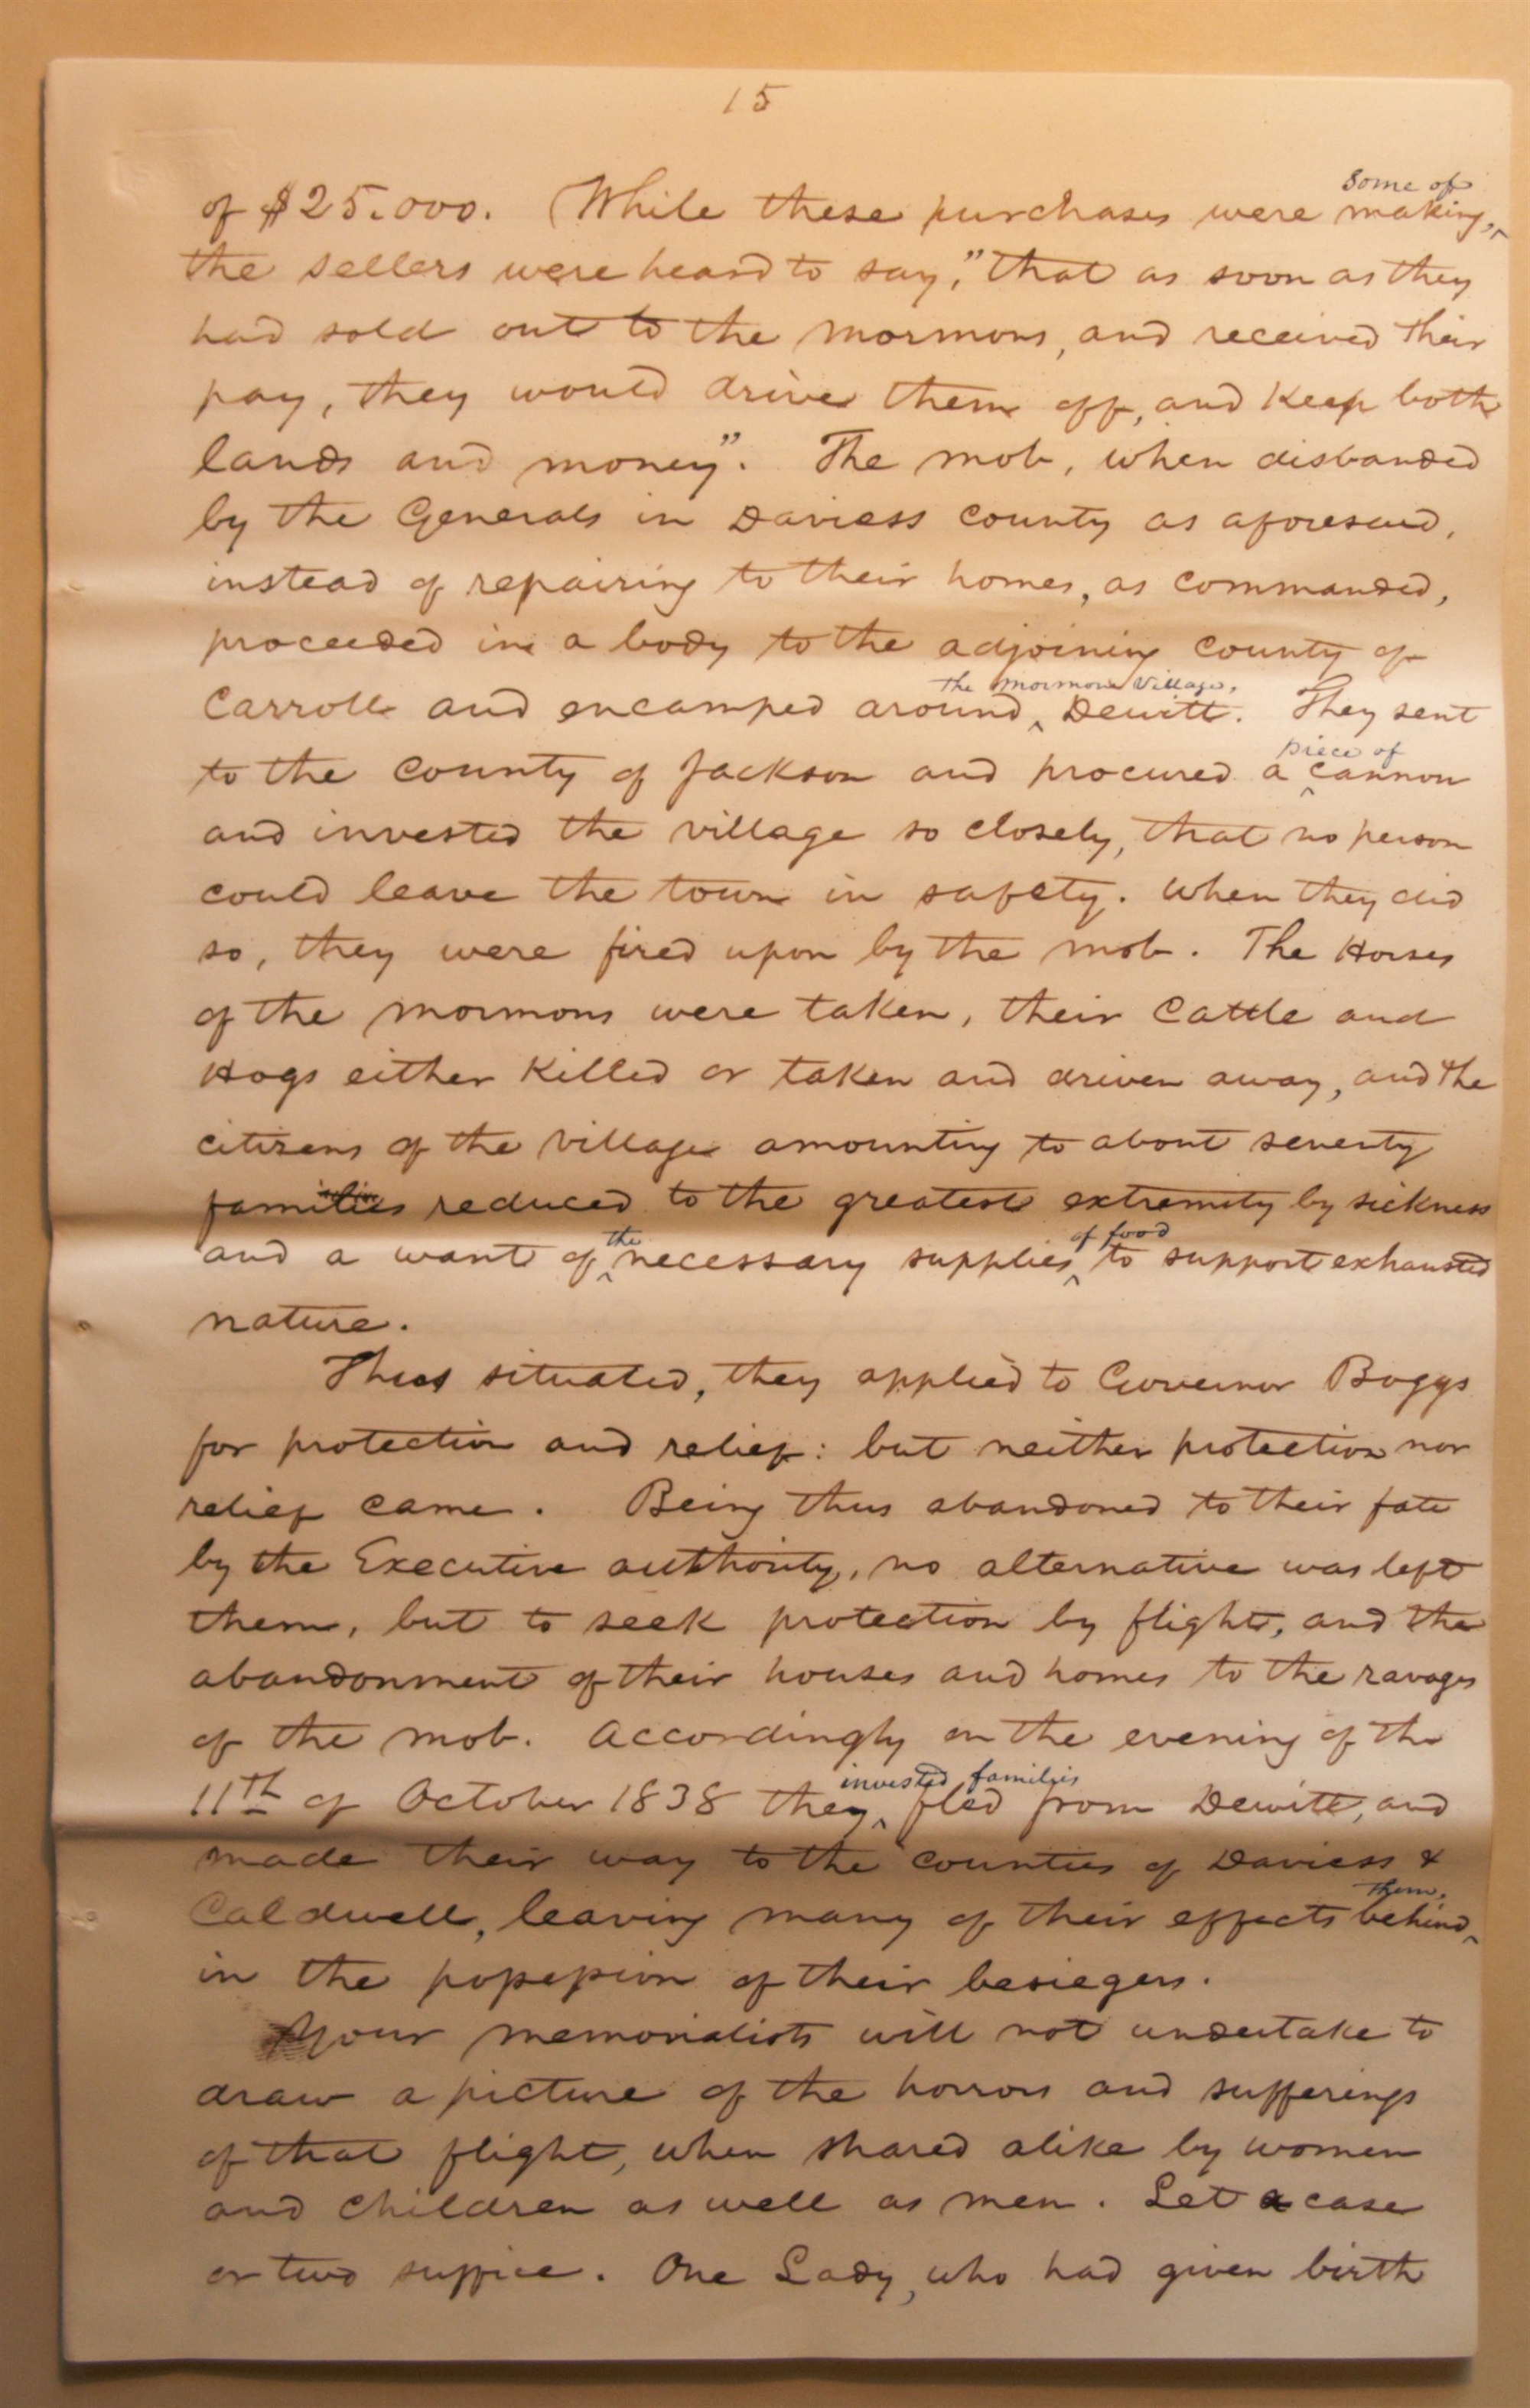 15
some of
of $25.000. While these purchases were making,^
the sellers were heard to say," that as soon as they
had sold out to the mormons, and received their
pay, they would drive them off, and keep both
lands and money". The mob, when disbanded
by the Generals in Daviess county as aforesaid,
instead of repairing to their homes, as commanded,
proceeded in a body to the adjoining county of
the mormon village,
Carroll and encamped around ^ Dewitt. They sent
piece of
to the county of Jackson and procured a ^ cannon
and invested the village so closely, that no person
could leave the town in safety. When they did
so, they were fired upon by the mob. The Horses
of the mormons were taken, their Cattle and
Hogs either Killed or taken and driven away, and the
citizens of the village amounting to about seventy
families reduced to the greatest extremity by sickness
the of food
and a want of ^ necessary supplies ^ to support exhausted
nature.
Thus situated, they applied to Governor Boggs
for protection and relief: but neither protection nor
relief came. Being thus abandoned to their fate
by the Executive authority, no alternative was left
them, but to seek protection by flight, and the
abandonment of their houses and homes to the ravages
of the mob. Accordingly on the evening of the
invested families
11th of October 1838 they ^ fled from Dewitt, and
made their way to the counties of Daviess &
them,
Caldwell, leaving many of their effects behind ^
in the possession of their besiegers.
Your memorialists will not undertake to
draw a picture of the horrors and sufferings
of that flight, when shared alike by women
and children as well as men. Let a case
or two suffice. One Lady, who had given birth